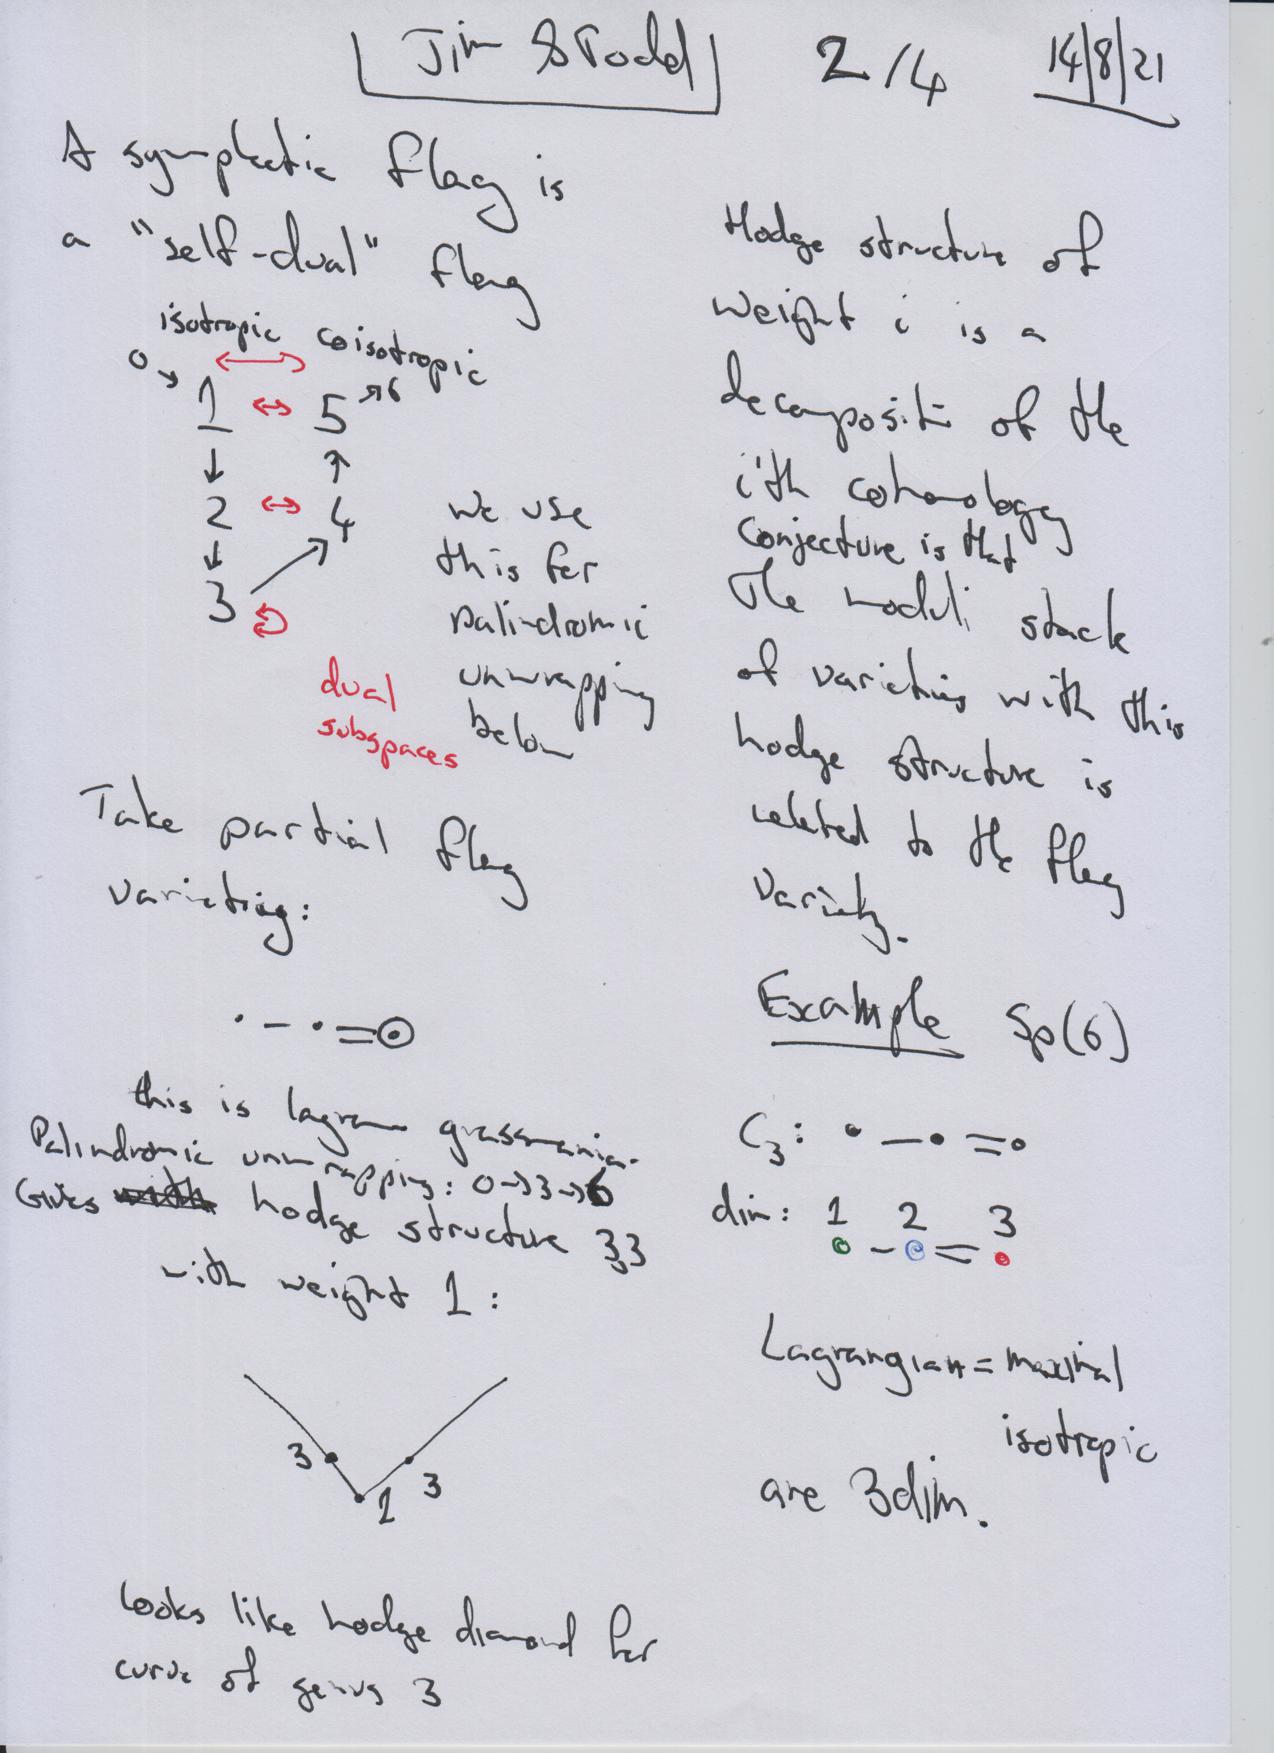 Jim & Todd 2/4 14/8/21
A symplectic flag is
a "self-dual" flag
isotropic coisotropic
0 → 1 ↔ 5 ↗ 6
↓ ↑
2 ↔ 4
↓
3
dual
subspaces
we use
this for
palindromic
unwrapping
below
Take partial flag
varieties:
this is lagran grassmania.
Palindromic unwrapping: 0→3→6
Gives hodge structure 3,3
with weight 1:
3 3
1
Looks like hodge diamond for
curve of genus 3
Hodge structure of
weight i is a
decompositi of the
i'th cohomology
Conjecture is that
The moduli stack
of varieties with this
hodge structure is
related to the flag
variety.
Example Sp(6)
C3: • — • = •
dim: 1 2 3
Lagrangian = maximal
isotropic
are 3dim.